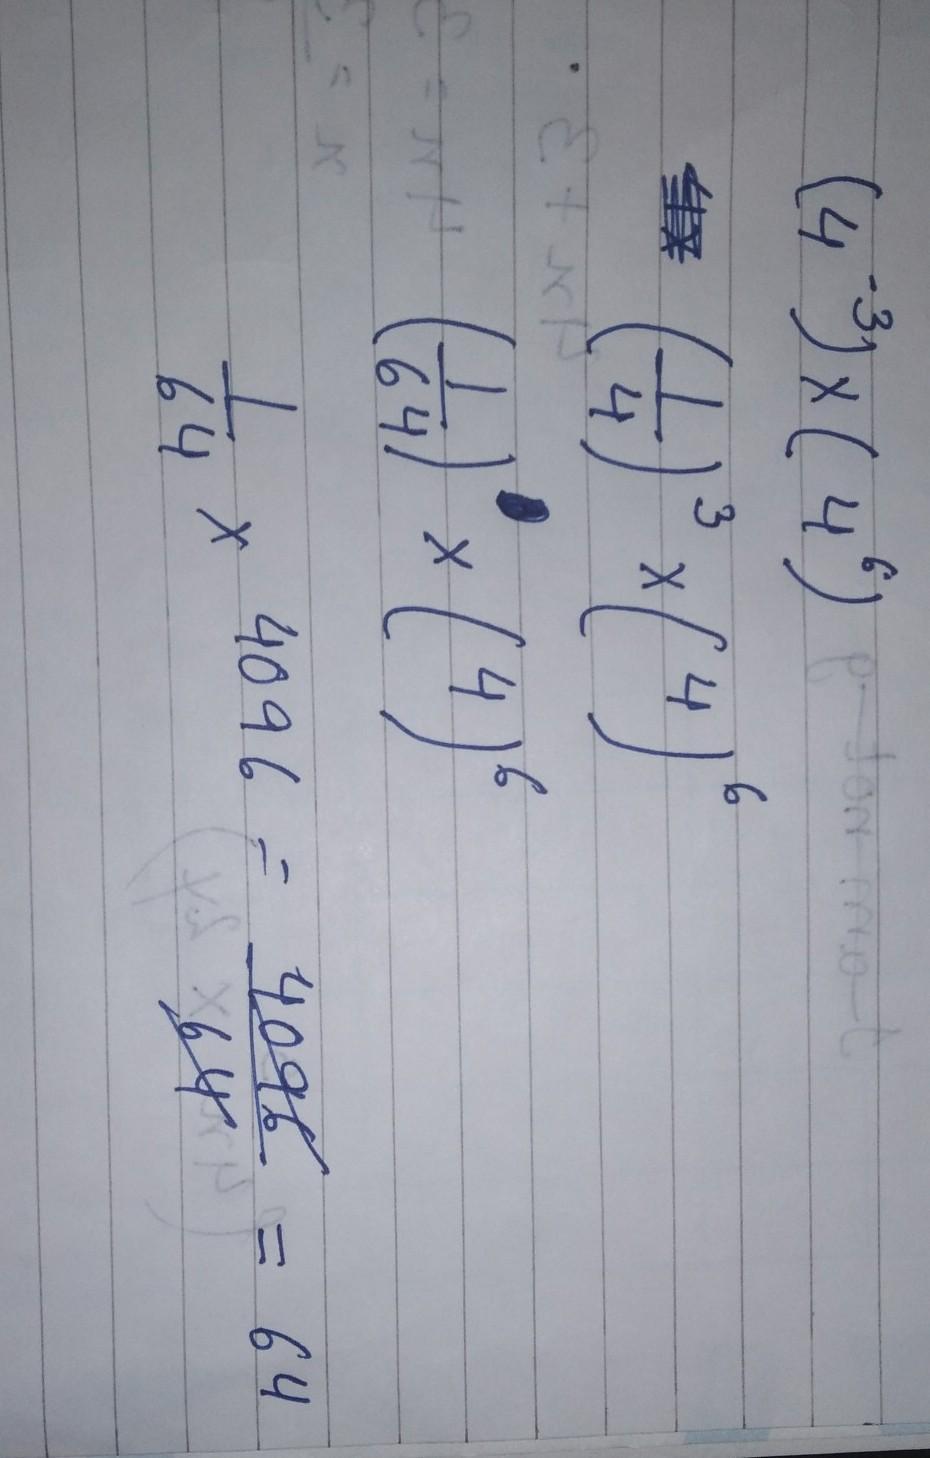 (4⁻³) × (4⁶)
(1/4)³ × (4)⁶
(1/64) × (4)⁶
1/64 × 4096 = 4096/64 = 64